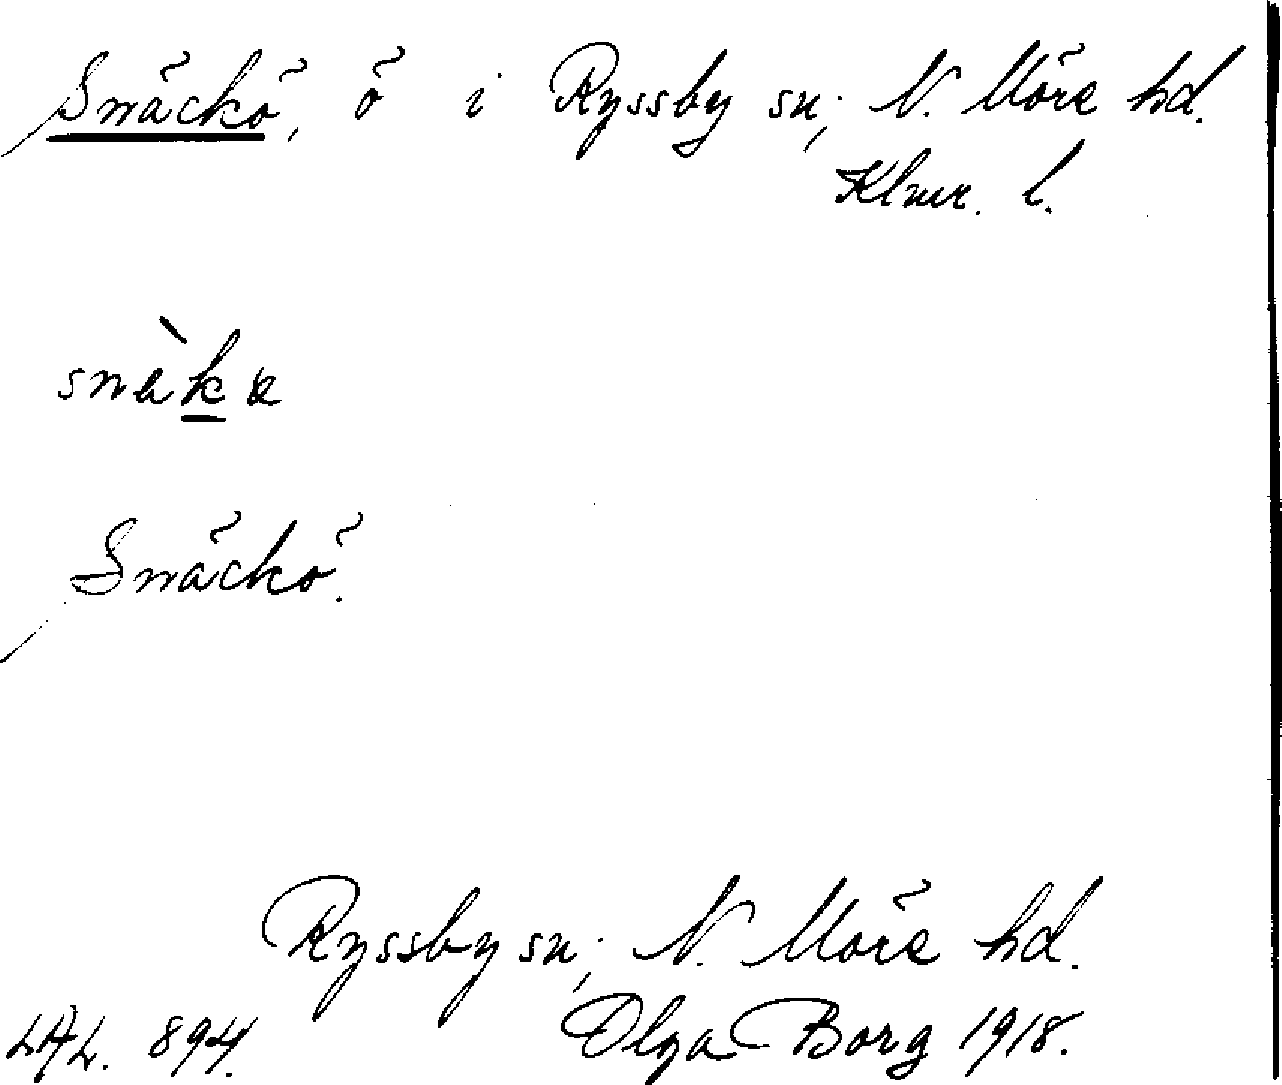 Snäckö, ö i Ryssby sn; N. Möre hd.
Klmr. l.
Snäckö.
Ryssby sn; N. Möre hd.
LAL. 894. Olga Borg 1918.